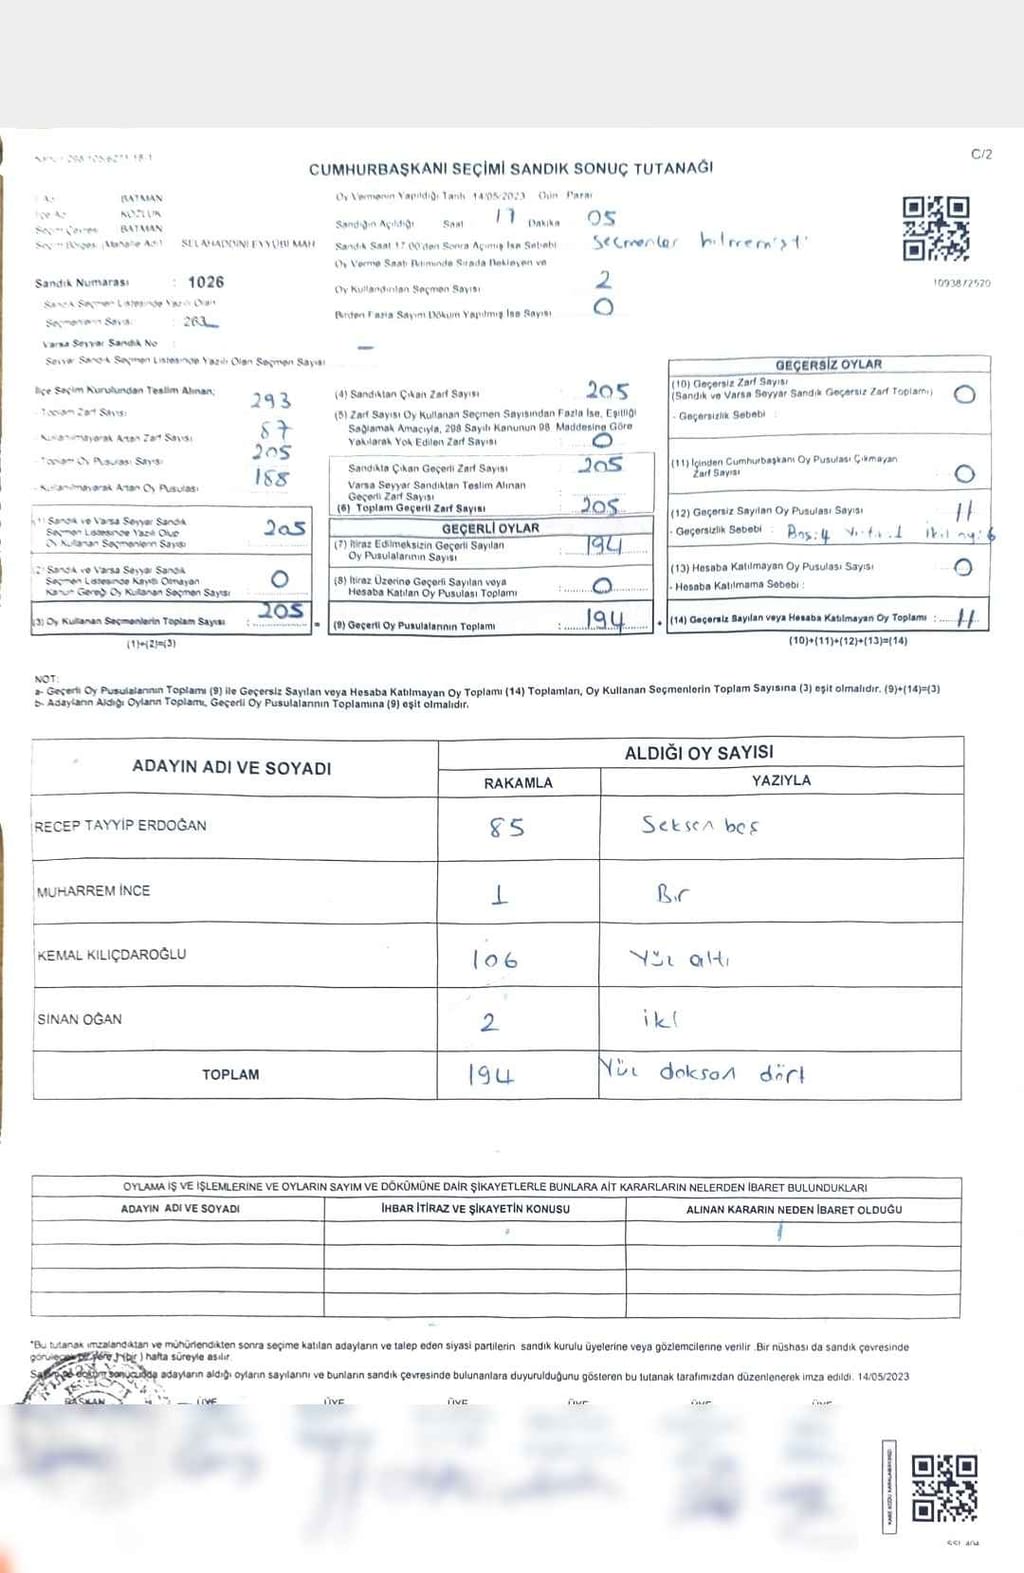 C/2
CUMHURBAŞKANI SEÇİMİ SANDIK SONUÇ TUTANAĞI
BATMAN
KOZLUK
BATMAN
SELAHADDİNİ EYYÜBİ MAH
Sandık Numarası : 1026
Sandık Seçmen Listesinde Yazılı Olan
Seçmenlerin Sayısı :
Varsa Seyyar Sandık No :
Seyyar Sandık Seçmen Listesinde Yazılı Olan Seçmen Sayısı —
Oy Vermenin Yapıldığı Tarih 14/05/2023 Gün Pazar
Sandığın Açıldığı Saat 17 Dakika 05
Sandık Saat 17.00'den Sonra Açılmış İse Sebebi Seçmenler
Oy Verme Saati Bitiminde Sırada Bekleyen ve
Oy Kullandırılan Seçmen Sayısı 2
Birden Fazla Sayım Döküm Yapılmış İse Sayısı 0
1093872520
İlçe Seçim Kurulundan Teslim Alınan;
- Toplam Zarf Sayısı 293
- Kullanılmayarak Artan Zarf Sayısı 87
- Toplam Oy Pusulası Sayısı 205
- Kullanılmayarak Artan Oy Pusulası 188
(1) Sandık ve Varsa Seyyar Sandık
Seçmen Listesinde Yazılı Olup
Oy Kullanan Seçmenlerin Sayısı 205
(2) Sandık ve Varsa Seyyar Sandık
Seçmen Listesinde Kayıtlı Olmayan
Kanun Gereği Oy Kullanan Seçmen Sayısı 0
(3) Oy Kullanan Seçmenlerin Toplam Sayısı : 205
(1)+(2)=(3)
(4) Sandıktan Çıkan Zarf Sayısı : 205
(5) Zarf Sayısı Oy Kullanan Seçmen Sayısından Fazla İse, Eşitliği
Sağlamak Amacıyla, 298 Sayılı Kanunun 98. Maddesine Göre
Yakılarak Yok Edilen Zarf Sayısı : 0
Sandıkta Çıkan Geçerli Zarf Sayısı : 205
Varsa Seyyar Sandıktan Teslim Alınan
Geçerli Zarf Sayısı
(6) Toplam Geçerli Zarf Sayısı : 205
GEÇERLİ OYLAR
(7) İtiraz Edilmeksizin Geçerli Sayılan
Oy Pusulalarının Sayısı : 194
(8) İtiraz Üzerine Geçerli Sayılan veya
Hesaba Katılan Oy Pusulası Toplamı : 0
= (9) Geçerli Oy Pusulalarının Toplamı : 194
GEÇERSİZ OYLAR
(10) Geçersiz Zarf Sayısı
(Sandık ve Varsa Seyyar Sandık Geçersiz Zarf Toplamı) 0
- Geçersizlik Sebebi :
(11) İçinden Cumhurbaşkanı Oy Pusulası Çıkmayan
Zarf Sayısı 0
(12) Geçersiz Sayılan Oy Pusulası Sayısı 11
- Geçersizlik Sebebi : Boş:4
(13) Hesaba Katılmayan Oy Pusulası Sayısı 0
- Hesaba Katılmama Sebebi :
+ (14) Geçersiz Sayılan veya Hesaba Katılmayan Oy Toplamı : 11
(10)+(11)+(12)+(13)=(14)
NOT:
a- Geçerli Oy Pusulalarının Toplamı (9) ile Geçersiz Sayılan veya Hesaba Katılmayan Oy Toplamı (14) Toplamları, Oy Kullanan Seçmenlerin Toplam Sayısına (3) eşit olmalıdır. (9)+(14)=(3)
b- Adayların Aldığı Oyların Toplamı, Geçerli Oy Pusulalarının Toplamına (9) eşit olmalıdır.
ADAYIN ADI VE SOYADI
ALDIĞI OY SAYISI
RAKAMLA YAZIYLA
RECEP TAYYİP ERDOĞAN 85 Seksen beş
MUHARREM İNCE 1 Bir
KEMAL KILIÇDAROĞLU 106 Yüz altı
SİNAN OĞAN 2 iki
TOPLAM 194 Yüz doksan dört
OYLAMA İŞ VE İŞLEMLERİNE VE OYLARIN SAYIM VE DÖKÜMÜNE DAİR ŞİKAYETLERLE BUNLARA AİT KARARLARIN NELERDEN İBARET BULUNDUKLARI
ADAYIN ADI VE SOYADI İHBAR İTİRAZ VE ŞİKAYETİN KONUSU ALINAN KARARIN NEDEN İBARET OLDUĞU
*Bu tutanak imzalandıktan ve mühürlendikten sonra seçime katılan adayların ve talep eden siyasi partilerin sandık kurulu üyelerine veya gözlemcilerine verilir. Bir nüshası da sandık çevresinde
görülecek bir yere 1 (bir) hafta süreyle asılır.
Sayım ve döküm sonucunda adayların aldığı oyların sayılarını ve bunların sandık çevresinde bulunanlara duyurulduğunu gösteren bu tutanak tarafımızdan düzenlenerek imza edildi. 14/05/2023
BAŞKAN ÜYE ÜYE ÜYE ÜYE ÜYE ÜYE